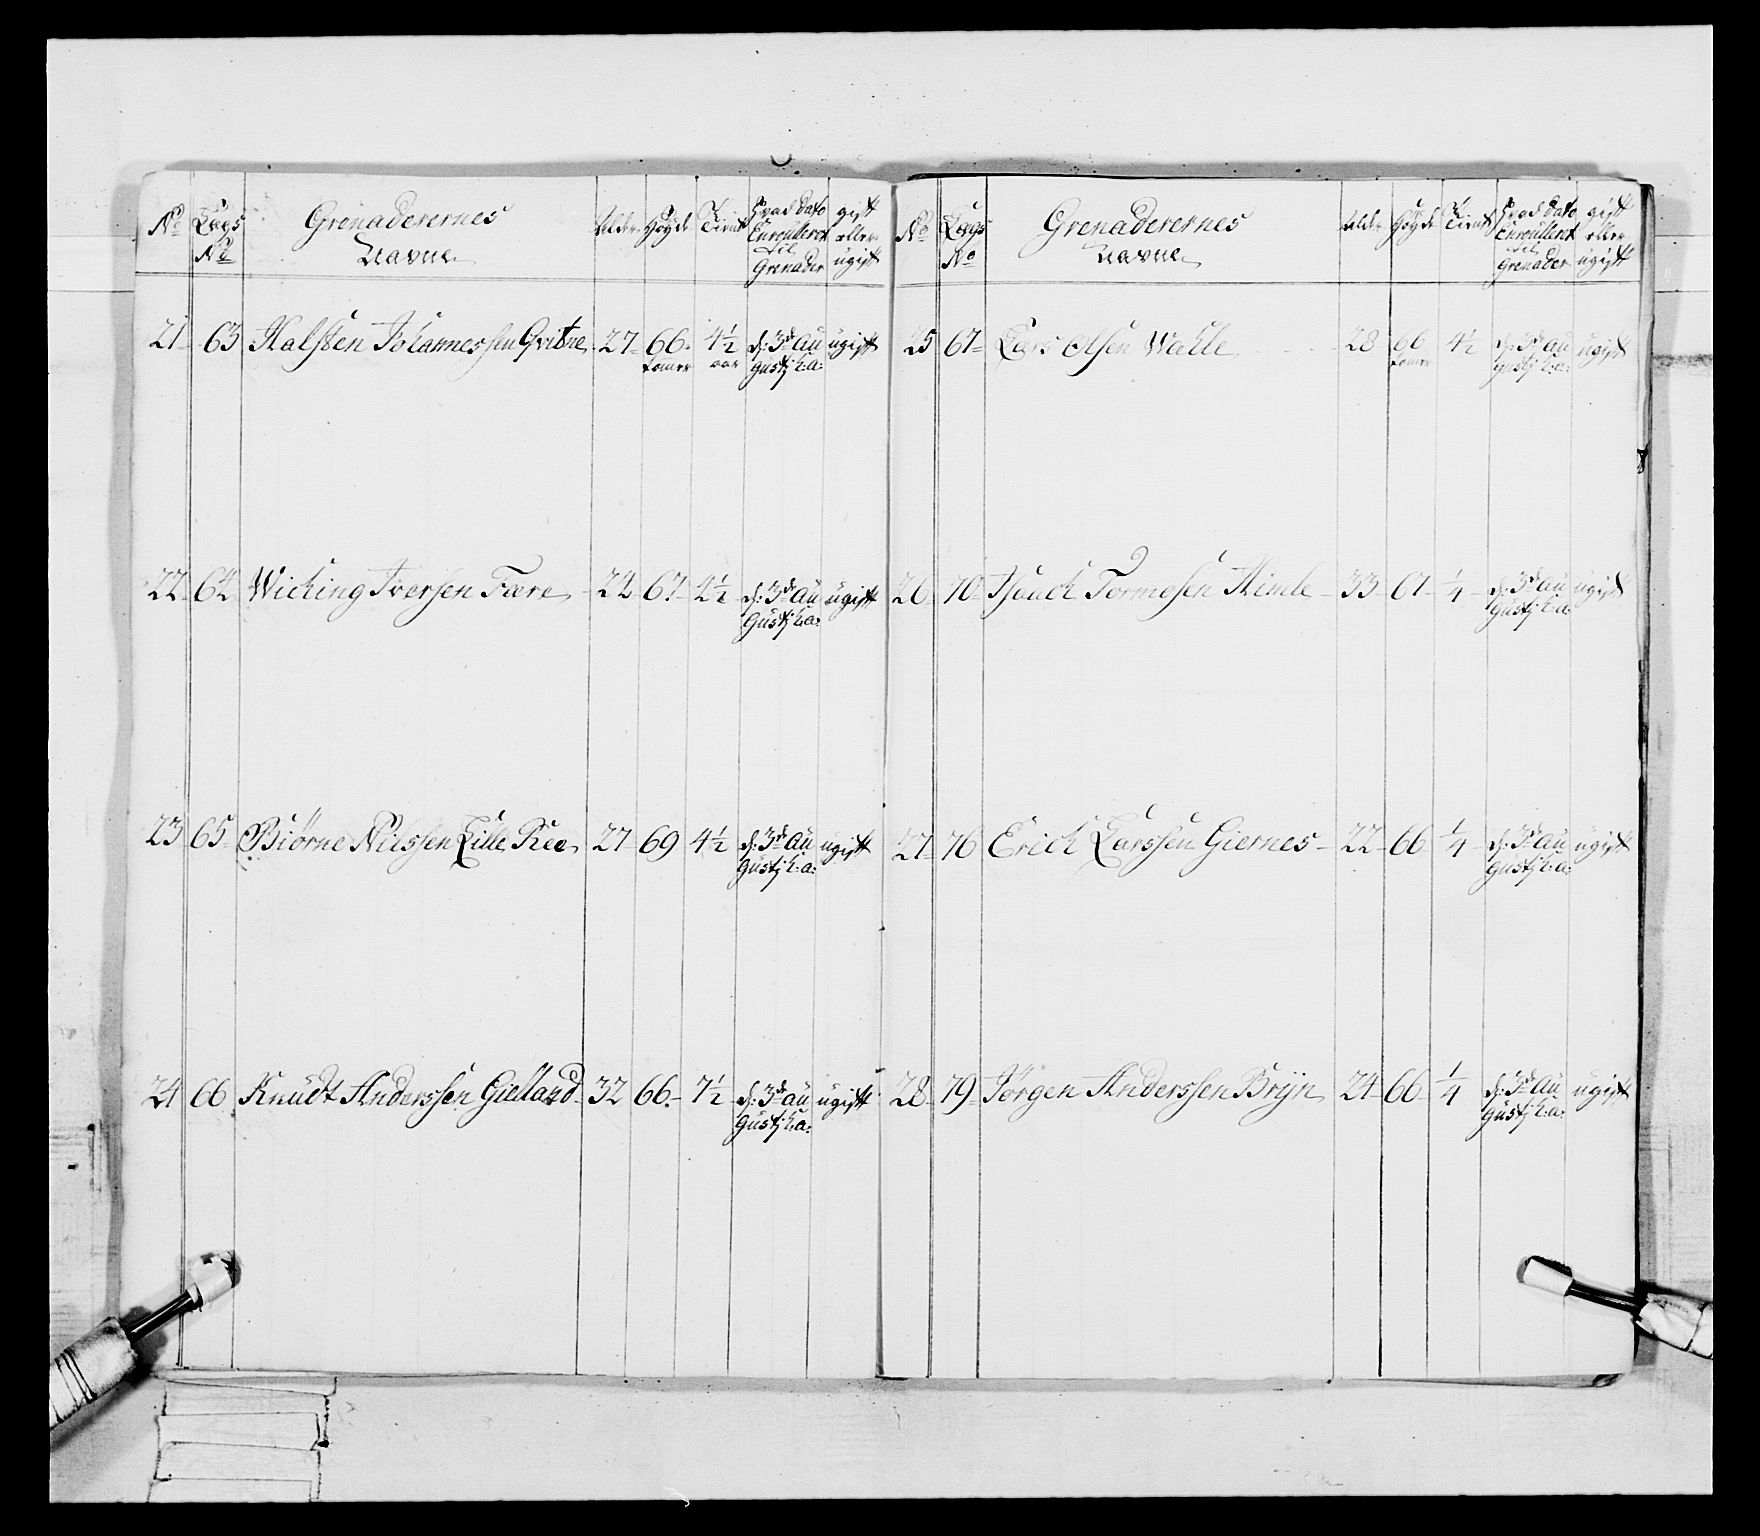 No Lægs No Grenaderernes Navne Alder Høyde Tient Hvad Dato Enroullert til Grenader gift eller ugift
21 63 Halsten Johannessen Gvitne 27 66 tomer 4½ aar d: 3de Augustj h:a: ugift
22 64 Wiching Iversen Fære 24 67 4½ d: 3de Augustj h:a: ugift
23 65 Biørne Nilssen Lille Ree 27 69 4½ d: 3de Augustj h:a: ugift
24 66 Knudt Anderssen Gielland 32 66 7½ d: 3de Augustj h:a: ugift
No Lægs No Grenaderernes Navne Alder Høyde Tient Hvad Dato Enroullert til Grenader gift eller ugift
25 67 Lars Olsen Wahle 28 66 tomer 4½ d: 3de Augustj h:a: ugift
26 70 Isaach Tormosen Himle 33 67 ¼ d: 3de Augustj h:a: ugift
27 76 Erich Larssen Giernes 22 66 ¼ d: 3de Augustj h:a: ugift
28 79 Jørgen Anderssen Bryn 24 66 ¼ d: 3de Augustj h:a: ugift